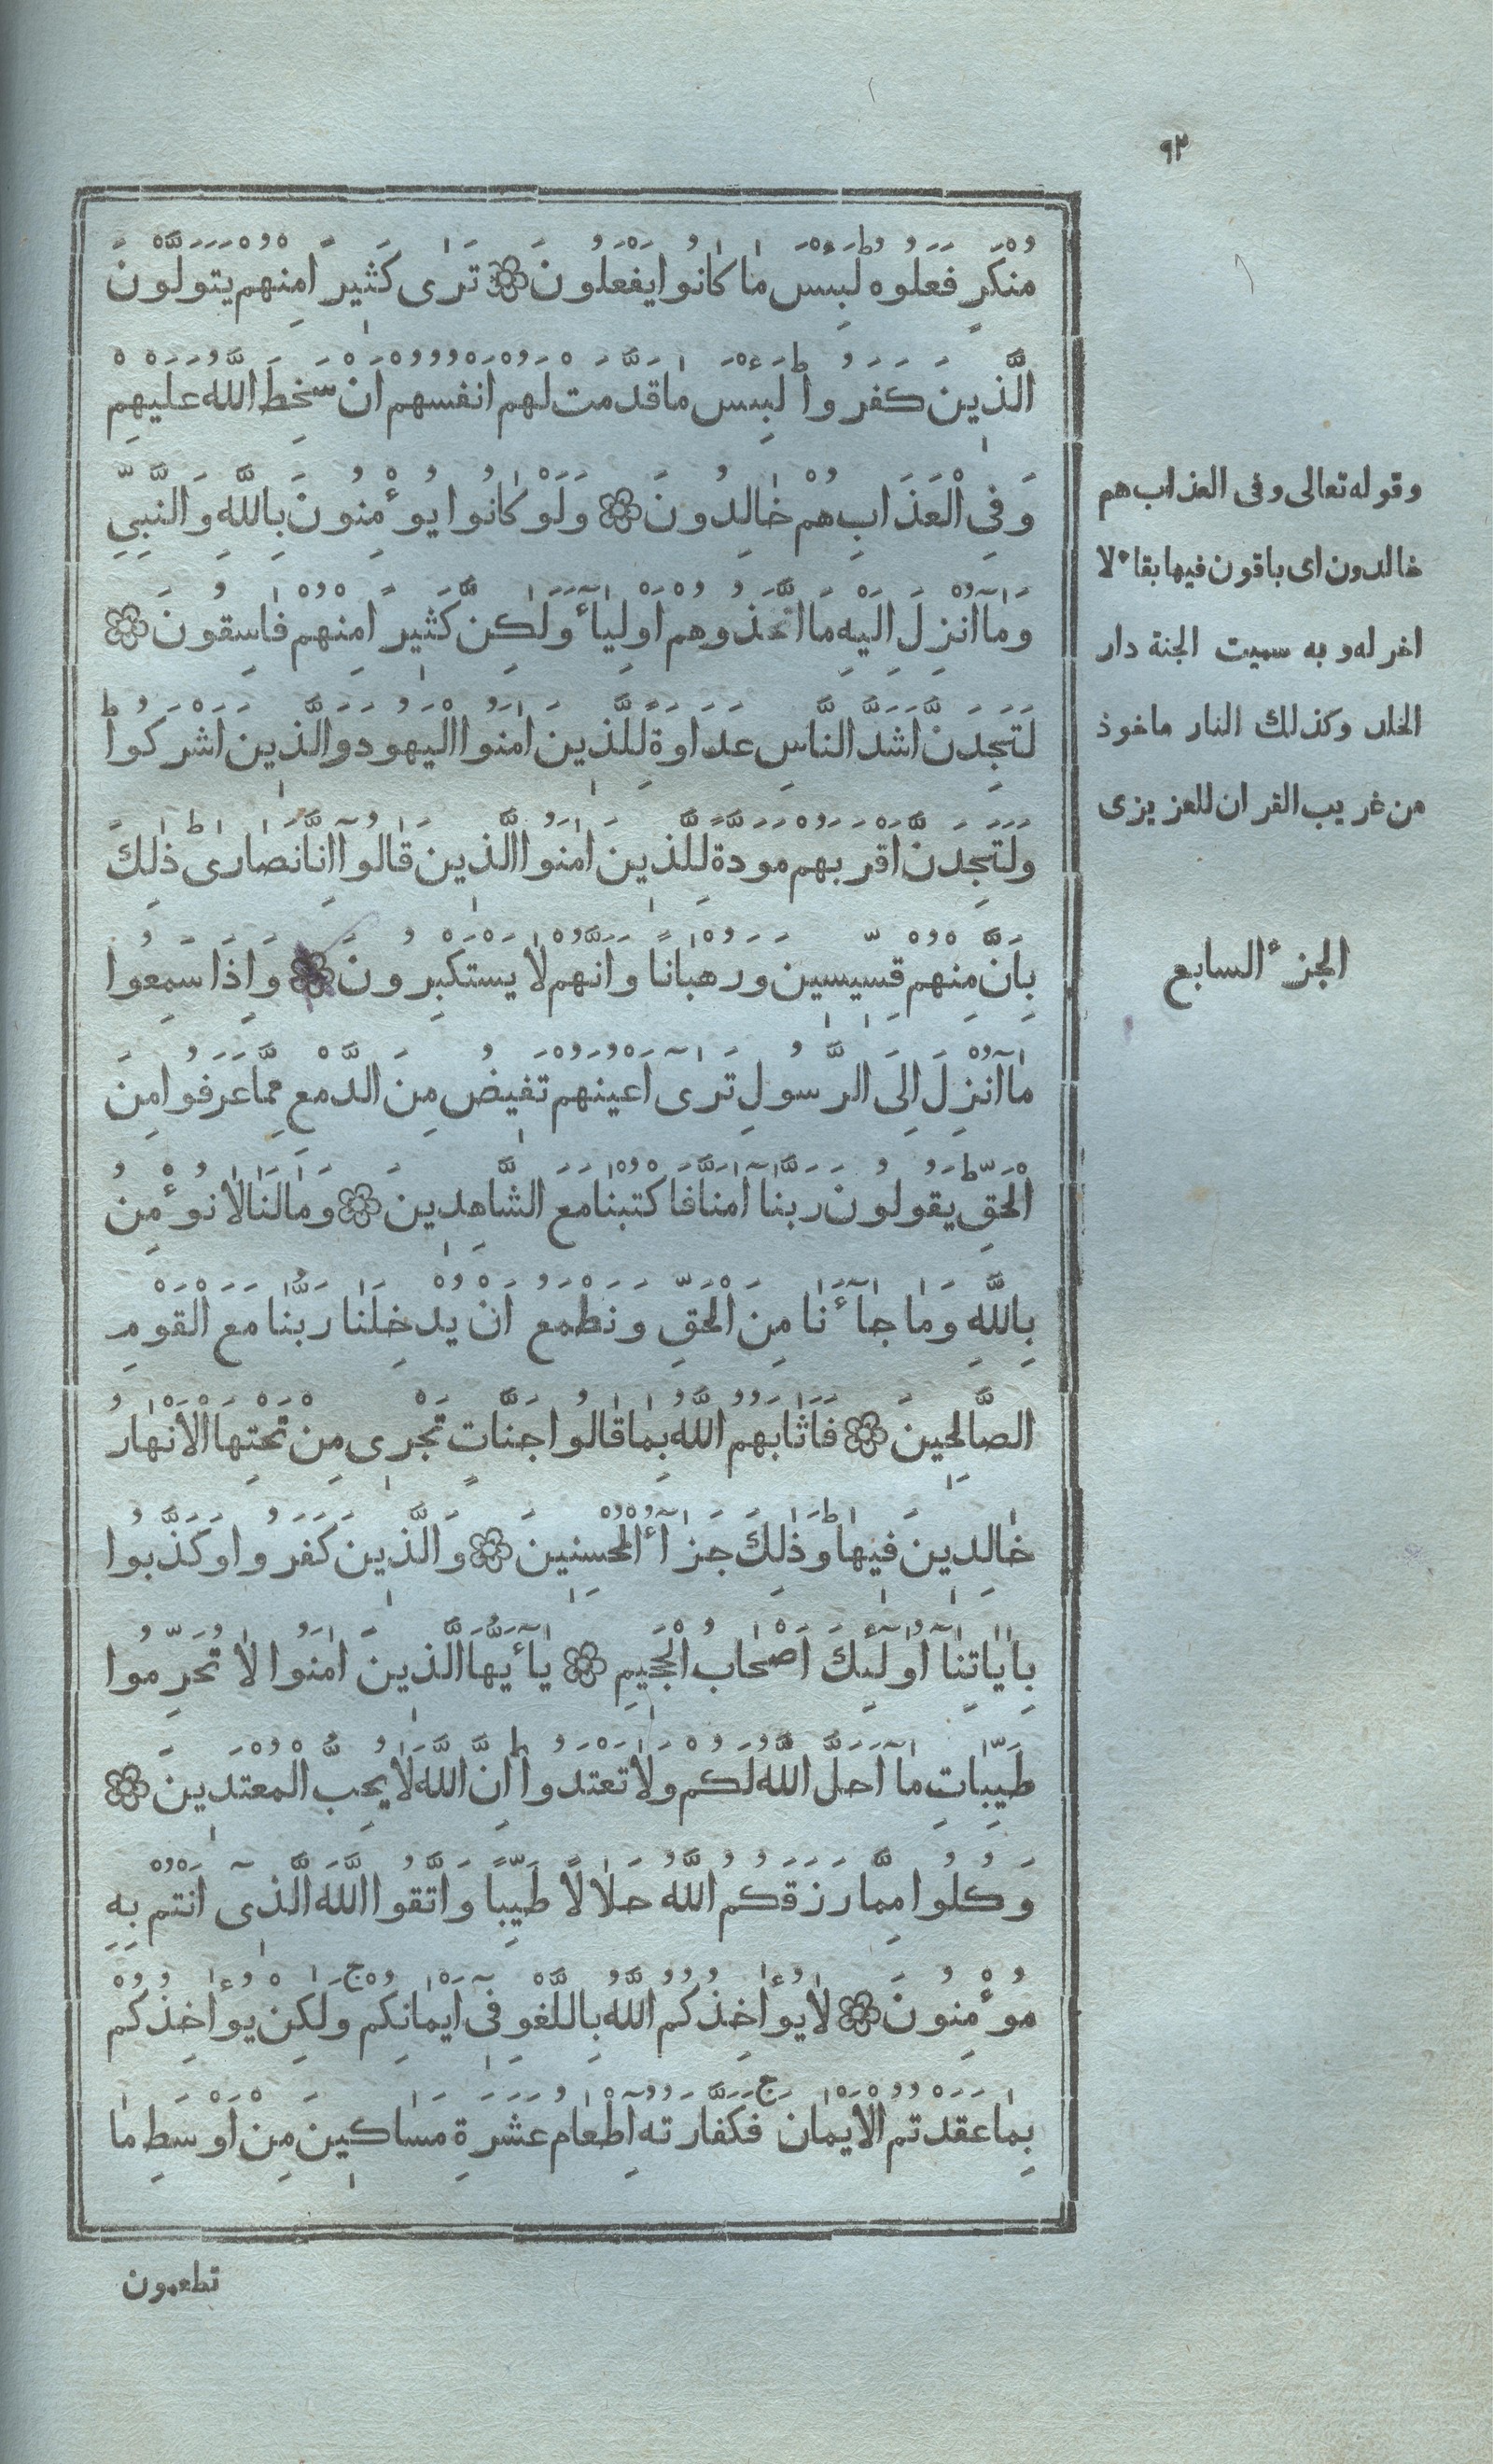 ٩٢
مُنْكَرٍ فَعَلُوهُ ط لَبِئْسَ مَا كَانُوا يَفْعَلُونَ ۞ تَرٰى كَثِيرًا مِنْهُمْ يَتَوَلَّوْنَ
الَّذِينَ كَفَرُوا ط لَبِئْسَ مَا قَدَّمَتْ لَهُمْ اَنْفُسُهُمْ اَنْ سَخِطَ اللّٰهُ عَلَيْهِمْ
وَفِى الْعَذَابِ هُمْ خَالِدُونَ ۞ وَلَوْ كَانُوا يُوءْمِنُونَ بِاللّٰهِ وَالنَّبِىِّ
وَمَا اُنْزِلَ اِلَيْهِ مَا اتَّخَذُوهُمْ اَوْلِيَاءَ وَلٰكِنَّ كَثِيرًا مِنْهُمْ فَاسِقُونَ ۞
لَتَجِدَنَّ اَشَدَّ النَّاسِ عَدَاوَةً لِلَّذِينَ اٰمَنُوا الْيَهُودَ وَالَّذِينَ اَشْرَكُوا ط
وَلَتَجِدَنَّ اَقْرَبَهُمْ مَوَدَّةً لِلَّذِينَ اٰمَنُوا الَّذِينَ قَالُوا اِنَّا نَصَارٰى ط ذٰلِكَ
بِاَنَّ مِنْهُمْ قِسِّيسِينَ وَرُهْبَانًا وَاَنَّهُمْ لَا يَسْتَكْبِرُونَ ۞ وَاِذَا سَمِعُوا
مَا اُنْزِلَ اِلَى الرَّسُولِ تَرٰى اَعْيُنَهُمْ تَفِيضُ مِنَ الدَّمْعِ مِمَّا عَرَفُوا مِنَ
الْحَقِّ ط يَقُولُونَ رَبَّنَا اٰمَنَّا فَاكْتُبْنَا مَعَ الشَّاهِدِينَ ۞ وَمَا لَنَا لَا نُوءْمِنُ
بِاللّٰهِ وَمَا جَاءَنَا مِنَ الْحَقِّ وَنَطْمَعُ اَنْ يُدْخِلَنَا رَبُّنَا مَعَ الْقَوْمِ
الصَّالِحِينَ ۞ فَاَثَابَهُمُ اللّٰهُ بِمَا قَالُوا جَنَّاتٍ تَجْرِى مِنْ تَحْتِهَا الْاَنْهَارُ
خَالِدِينَ فِيهَا ط وَذٰلِكَ جَزَاءُ الْمُحْسِنِينَ ۞ وَالَّذِينَ كَفَرُوا وَكَذَّبُوا
بِاٰيَاتِنَا اُولٰئِكَ اَصْحَابُ الْجَحِيمِ ۞ يَاءَيُّهَا الَّذِينَ اٰمَنُوا لَا تُحَرِّمُوا
طَيِّبَاتِ مَا اَحَلَّ اللّٰهُ لَكُمْ وَلَا تَعْتَدُوا ط اِنَّ اللّٰهَ لَا يُحِبُّ الْمُعْتَدِينَ ۞
وَكُلُوا مِمَّا رَزَقَكُمُ اللّٰهُ حَلَالًا طَيِّبًا وَاتَّقُوا اللّٰهَ الَّذِى اَنْتُمْ بِهِ
مُوءْمِنُونَ ۞ لَا يُوءَاخِذُكُمُ اللّٰهُ بِاللَّغْوِ فِى اَيْمَانِكُمْ ج وَلٰكِنْ يُوءَاخِذُكُمْ
بِمَا عَقَدْتُمُ الْاَيْمَانَ ج فَكَفَّارَتُهُ اِطْعَامُ عَشَرَةِ مَسَاكِينَ مِنْ اَوْسَطِ مَا
تطعمون
وقوله تعالى وفى العذاب هم
خالدون اى باقون فيها بقاء لا
اخر له و به سميت الجنة دار
الخلد وكذلك النار ماخوذ
من غريب القران للعزيزى
الجزء السابع